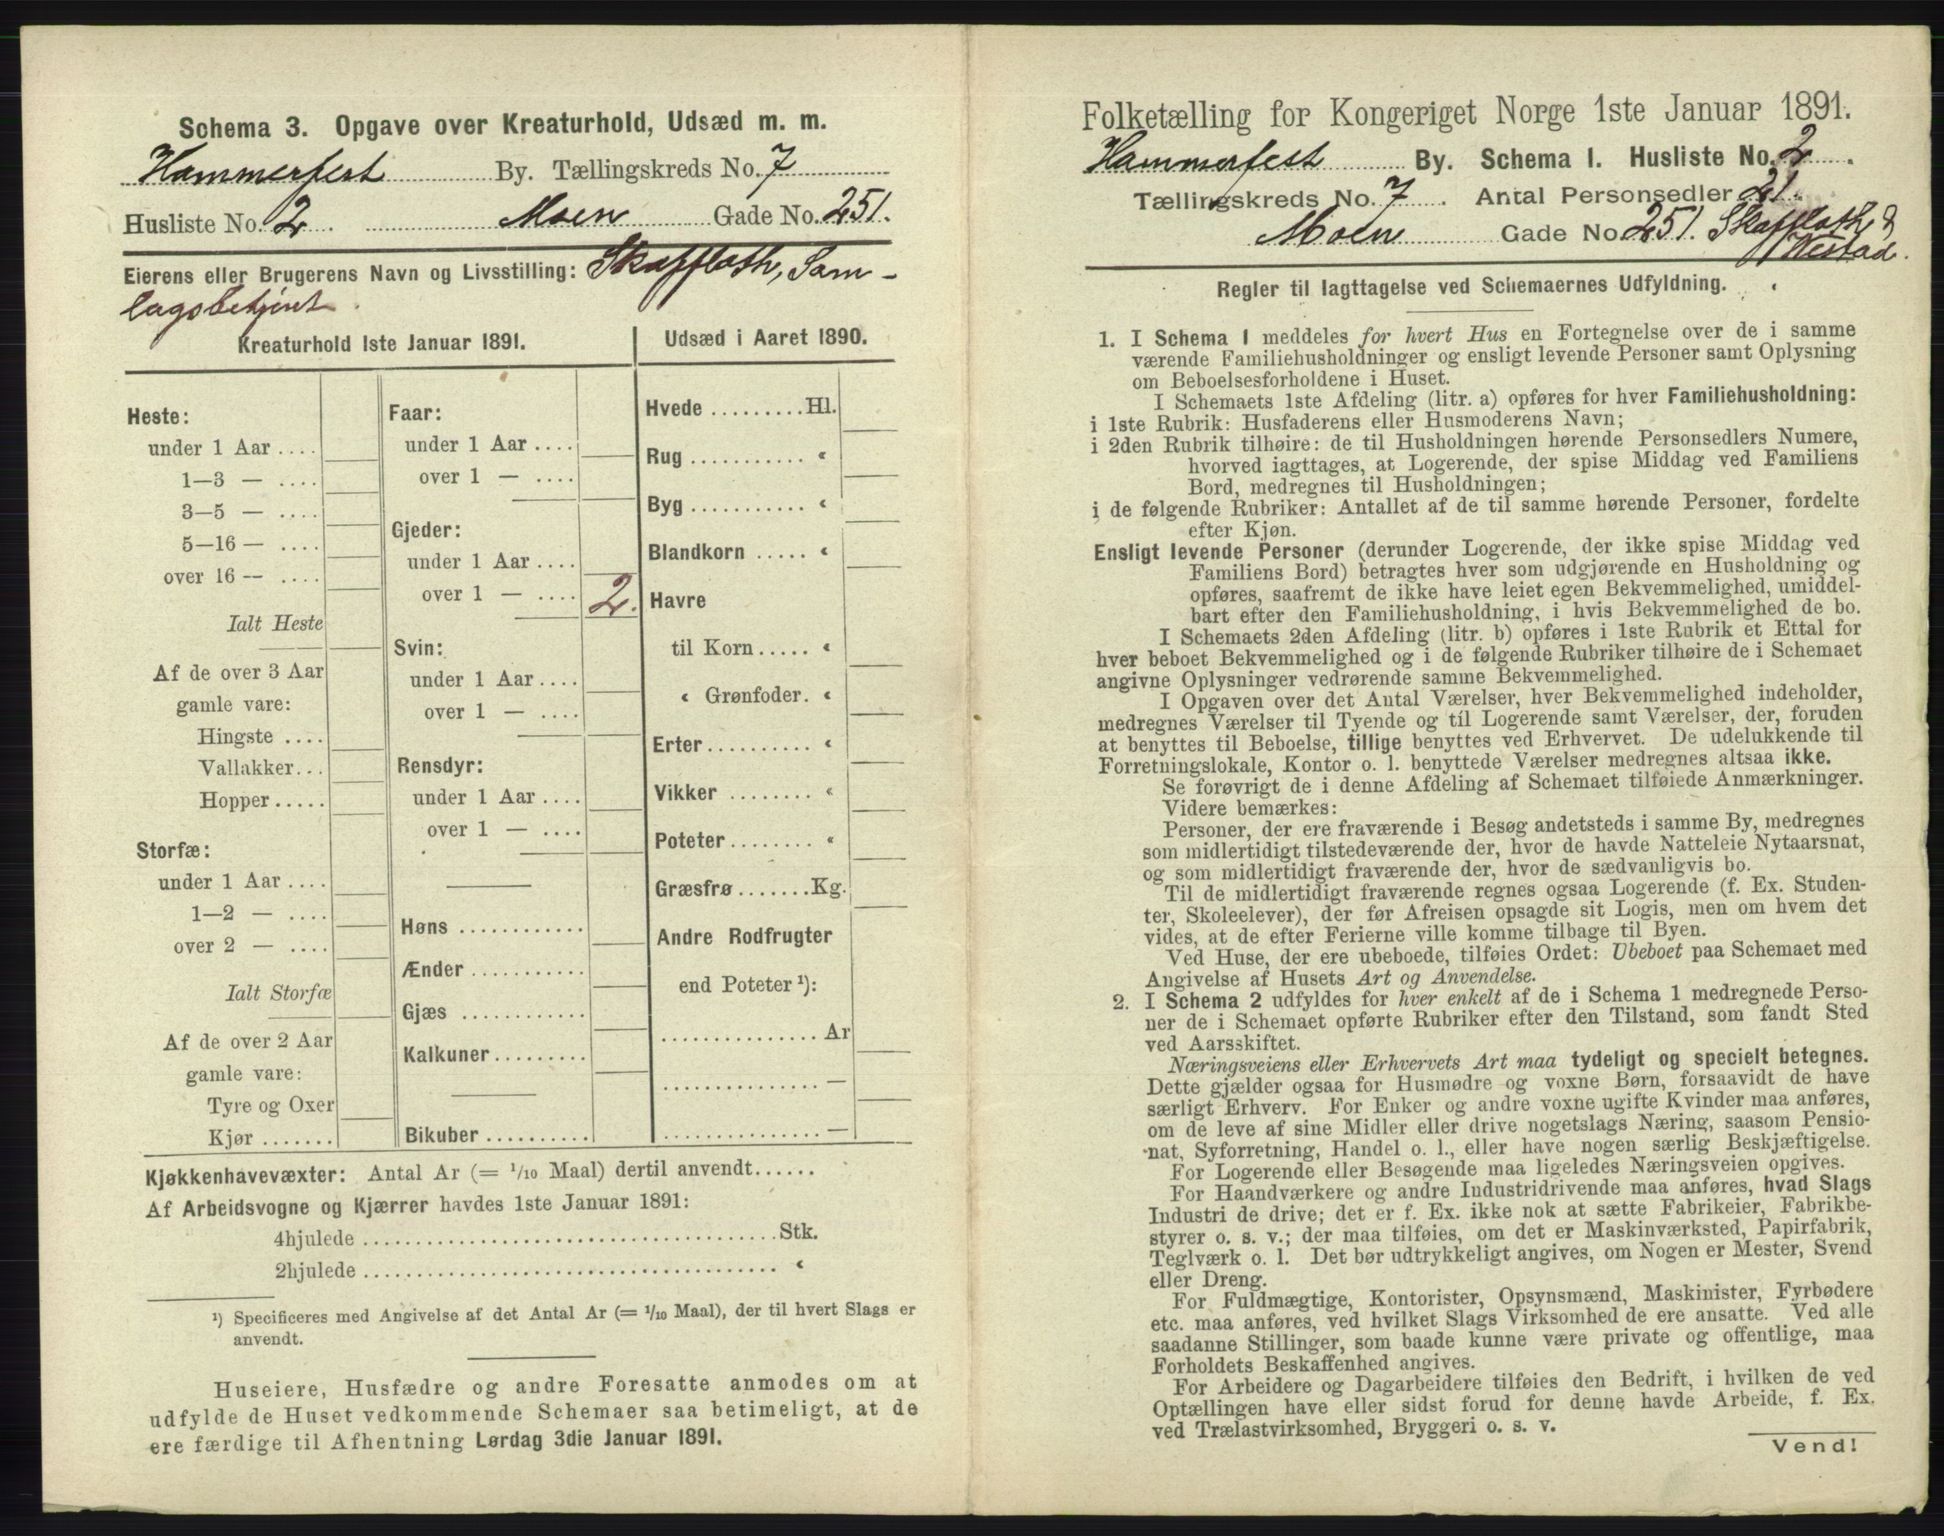 Schema 3. Opgave over Kreaturhold, Udsæd m. m.
Hammerfest By. Tællingskreds No. 7
Husliste No. 2. Moen Gade No. 251.
Eierens eller Brugerens Navn og Livsstilling: Skaffloth, Sam-
lagsbetjent.
Kreaturhold 1ste Januar 1891.
Heste:
under 1 Aar ....
1—3 — ....
3—5 — ....
5—16 — ....
over 16 — ....
Ialt Heste
Af de over 3 Aar
gamle vare:
Hingste ....
Vallakker...
Hopper .....
Storfæ:
under 1 Aar ....
1—2 — ....
over 2 — ....
Ialt Storfæ
Af de over 2 Aar
gamle vare:
Tyre og Oxer
Kjør .......
Faar:
under 1 Aar ....
over 1 — ....
Gjeder:
under 1 Aar ....
over 1 — .... 2.
Svin:
under 1 Aar ....
over 1 — ....
Rensdyr:
under 1 Aar ....
over 1 — ....
Høns ............
Ænder ...........
Gjæs ............
Kalkuner.........
Bikuber ..........
Udsæd i Aaret 1890.
Hvede .........Hl.
Rug ........... “
Byg ........... “
Blandkorn ..... “
Havre
til Korn..... “
“ Grønfoder. “
Erter.......... “
Vikker ........ “
Poteter........ “
Græsfrø .......Kg.
Andre Rodfrugter
end Poteter ¹):
............... Ar
............... —
............... —
Kjøkkenhavevæxter: Antal Ar (= 1/10 Maal) dertil anvendt......
Af Arbeidsvogne og Kjærrer havdes 1ste Januar 1891:
4hjulede ........................................Stk.
2hjulede ........................................ “
¹) Specificeres med Angivelse af det Antal Ar (= 1/10 Maal), der til hvert Slags er
anvendt.
Huseiere, Husfædre og andre Foresatte anmodes om at
udfylde de Huset vedkommende Schemaer saa betimeligt, at de
ere færdige til Afhentning Lørdag 3die Januar 1891.
Folketælling for Kongeriget Norge 1ste Januar 1891.
Hammerfest By. Schema I. Husliste No. 2.
Tællingskreds No. 7. Antal Personsedler 21.
Moen Gade No. 251. Skaffloth &
Westad.
Regler til Iagttagelse ved Schemaernes Udfyldning.
1. I Schema 1 meddeles for hvert Hus en Fortegnelse over de i samme
værende Familiehusholdninger og ensligt levende Personer samt Oplysning
om Beboelsesforholdene i Huset.
I Schemaets 1ste Afdeling (litr. a) opføres for hver Familiehusholdning:
i 1ste Rubrik: Husfaderens eller Husmoderens Navn;
i 2den Rubrik tilhøire: de til Husholdningen hørende Personsedlers Numere,
hvorved iagttages, at Logerende, der spise Middag ved Familiens
Bord, medregnes til Husholdningen;
i de følgende Rubriker: Antallet af de til samme hørende Personer, fordelte
efter Kjøn.
Ensligt levende Personer (derunder Logerende, der ikke spise Middag ved
Familiens Bord) betragtes hver som udgjørende en Husholdning og
opføres, saafremt de ikke have leiet egen Bekvemmelighed, umiddel-
bart efter den Familiehusholdning, i hvis Bekvemmelighed de bo.
I Schemaets 2den Afdeling (litr. b) opføres i 1ste Rubrik et Ettal for
hver beboet Bekvemmelighed og i de følgende Rubriker tilhøire de i Schemaet
angivne Oplysninger vedrørende samme Bekvemmelighed.
I Opgaven over det Antal Værelser, hver Bekvemmelighed indeholder,
medregnes Værelser til Tyende og til Logerende samt Værelser, der, foruden
at benyttes til Beboelse, tillige benyttes ved Erhvervet. De udelukkende til
Forretningslokale, Kontor o. l. benyttede Værelser medregnes altsaa ikke.
Se forøvrigt de i denne Afdeling af Schemaet tilføiede Anmærkninger.
Videre bemærkes:
Personer, der ere fraværende i Besøg andetsteds i samme By, medregnes
som midlertidigt tilstedeværende der, hvor de havde Natteleie Nytaarsnat,
og som midlertidigt fraværende der, hvor de sædvanligvis bo.
Til de midlertidigt fraværende regnes ogsaa Logerende (f. Ex. Studen-
ter, Skoleelever), der før Afreisen opsagde sit Logis, men om hvem det
vides, at de efter Ferierne ville komme tilbage til Byen.
Ved Huse, der ere ubeboede, tilføies Ordet: Ubeboet paa Schemaet med
Angivelse af Husets Art og Anvendelse.
2. I Schema 2 udfyldes for hver enkelt af de i Schema 1 medregnede Perso-
ner de i Schemaet opførte Rubriker efter den Tilstand, som fandt Sted
ved Aarsskiftet.
Næringsveiens eller Erhvervets Art maa tydeligt og specielt betegnes.
Dette gjælder ogsaa for Husmødre og voxne Børn, forsaavidt de have
særligt Erhverv. For Enker og andre voxne ugifte Kvinder maa anføres,
om de leve af sine Midler eller drive nogetslags Næring, saasom Pensio-
nat, Syforretning, Handel o. l., eller have nogen særlig Beskjæftigelse.
For Logerende eller Besøgende maa ligeledes Næringsveien opgives.
For Haandværkere og andre Industridrivende maa anføres, hvad Slags
Industri de drive; det er f. Ex. ikke nok at sætte Fabrikeier, Fabrikbe-
styrer o. s. v.; der maa tilføies, om det er Maskinværksted, Papirfabrik,
Teglværk o. l. Det bør udtrykkeligt angives, om Nogen er Mester, Svend
eller Dreng.
For Fuldmægtige, Kontorister, Opsynsmænd, Maskinister, Fyrbødere
etc. maa anføres, ved hvilket Slags Virksomhed de ere ansatte. Ved alle
saadanne Stillinger, som baade kunne være private og offentlige, maa
Forholdets Beskaffenhed angives.
For Arbeidere og Dagarbeidere tilføies den Bedrift, i hvilken de ved
Optællingen have eller sidst forud for denne havde Arbeide, f. Ex.
ved Trælastvirksomhed, Bryggeri o. s. v.
Vend!